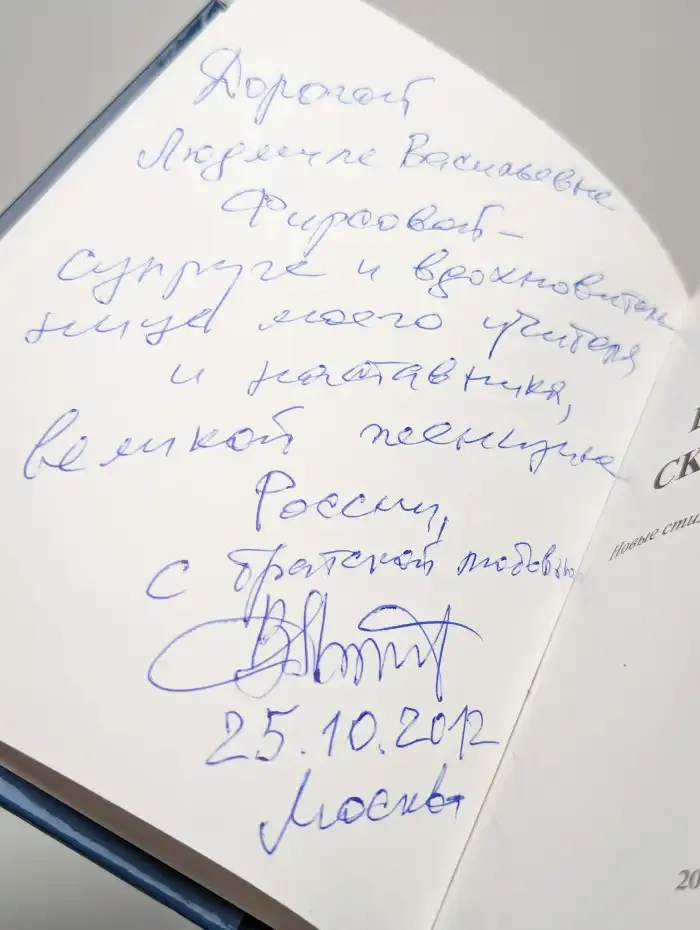 Дорогой
Людмиле Васильевне
Фирсовой -
супруге и вдохновитель
нице моего учителя
и наставника,
великой женщине
России,
с братской любовью
25.10.2012
Москва
СК
Новые сти
20